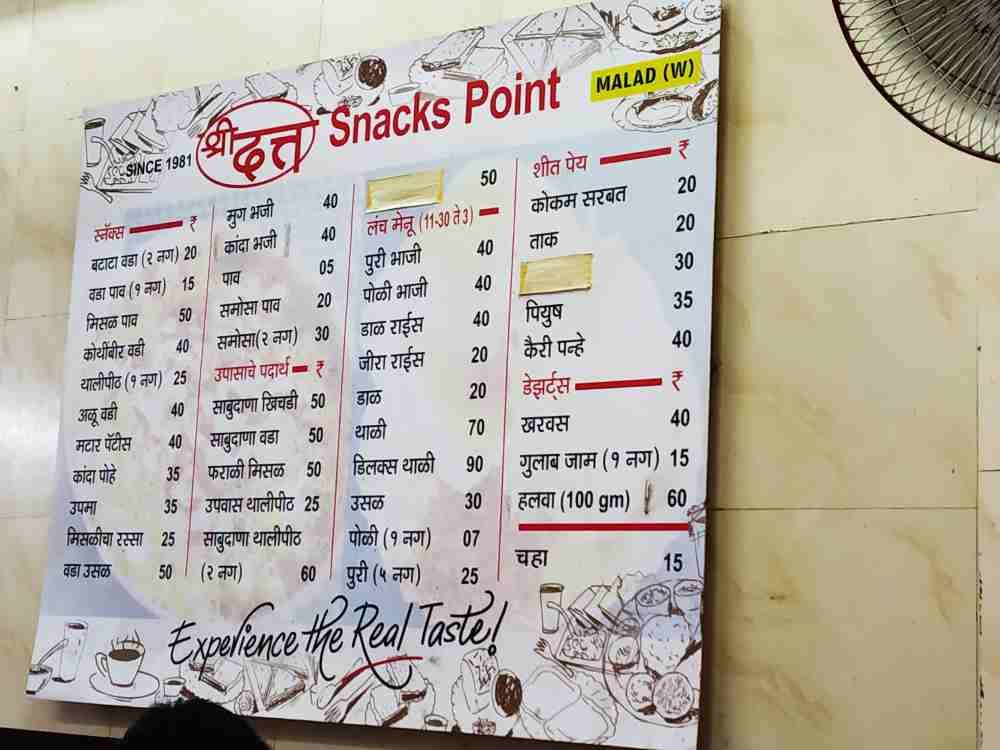 SINCE 1981
श्री दत्त Snacks Point
MALAD (W)
स्नॅक्स ₹
बटाटा वडा (२ नग) 20
वडा पाव (१ नग) 15
मिसळ पाव 50
कोथींबीर वडी 40
थालीपीठ (१ नग) 25
अळू वडी 40
मटार पॅटीस 40
कांदा पोहे 35
उपमा 35
मिसळीचा रस्सा 25
वडा उसळ 50
मुग भजी 40
कांदा भजी 40
पाव 05
समोसा पाव 20
समोसा(२ नग) 30
उपासाचे पदार्थ ₹
साबुदाणा खिचडी 50
साबुदाणा वडा 50
फराळी मिसळ 50
उपवास थालीपीठ 25
साबुदाणा थालीपीठ
(२ नग) 60
50
लंच मेनू (11-30 ते 3)
पुरी भाजी 40
पोळी भाजी 40
डाळ राईस 40
जीरा राईस 20
डाळ 20
थाळी 70
डिलक्स थाळी 90
उसळ 30
पोळी (१ नग) 07
पुरी (५ नग) 25
शीत पेय ₹
कोकम सरबत 20
ताक 20
30
पियुष 35
कैरी पन्हे 40
डेझर्ट्स ₹
खरवस 40
गुलाब जाम (१ नग) 15
हलवा (100 gm) 60
चहा 15
Experience the Real Taste!